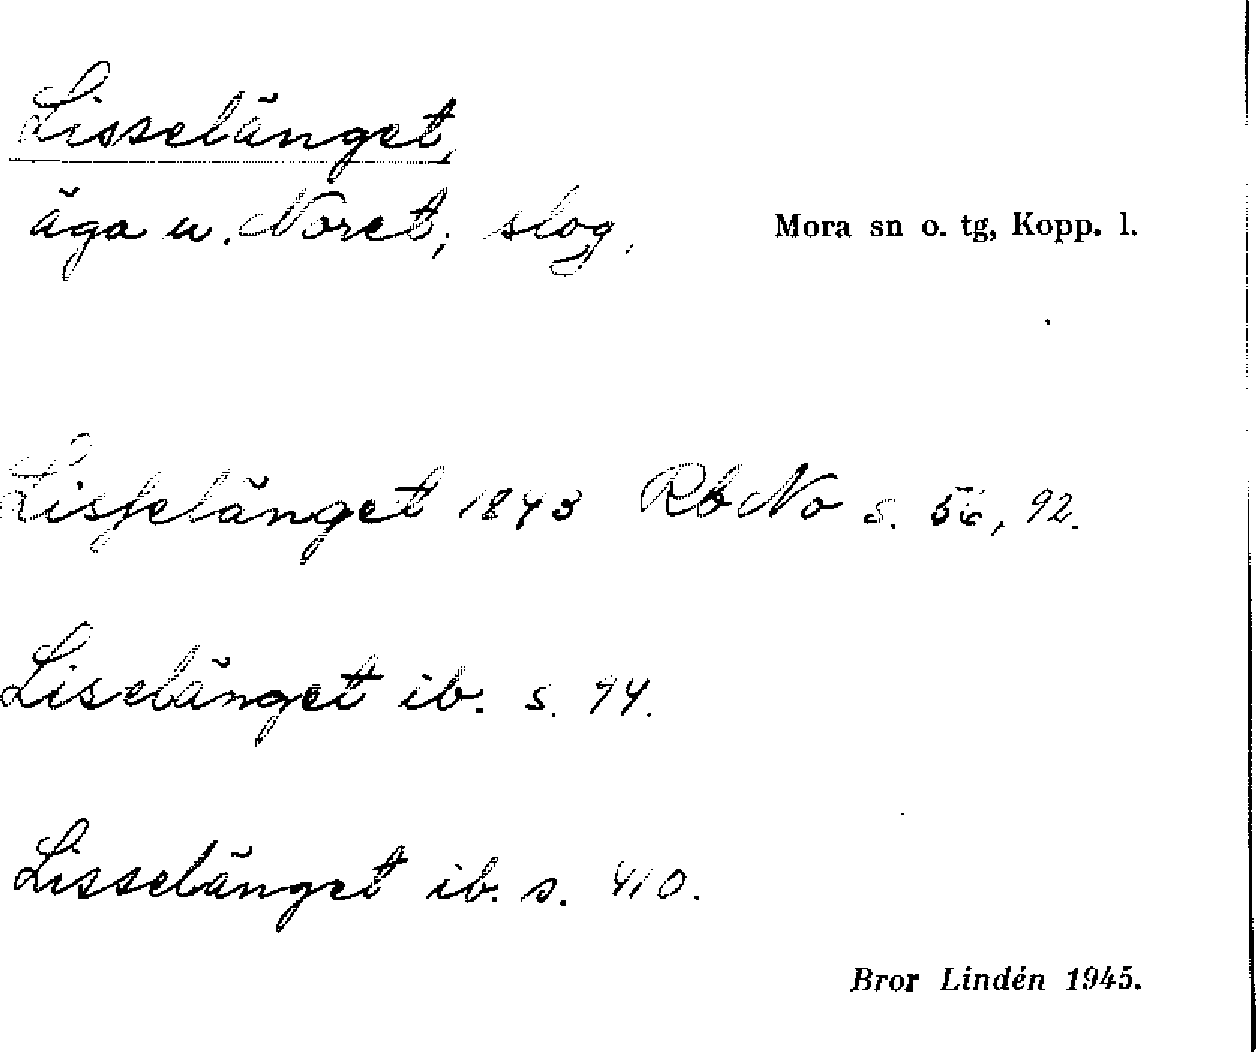 Lisselänget,
äga u. Noret; slog.
Mora sn o. tg, Kopp. l.
Lisſelänget 1843 Rb No s. 56, 92.
Liselänget ib. s. 94.
Lisselänget ib. s. 410.
Bror Lindén 1945.